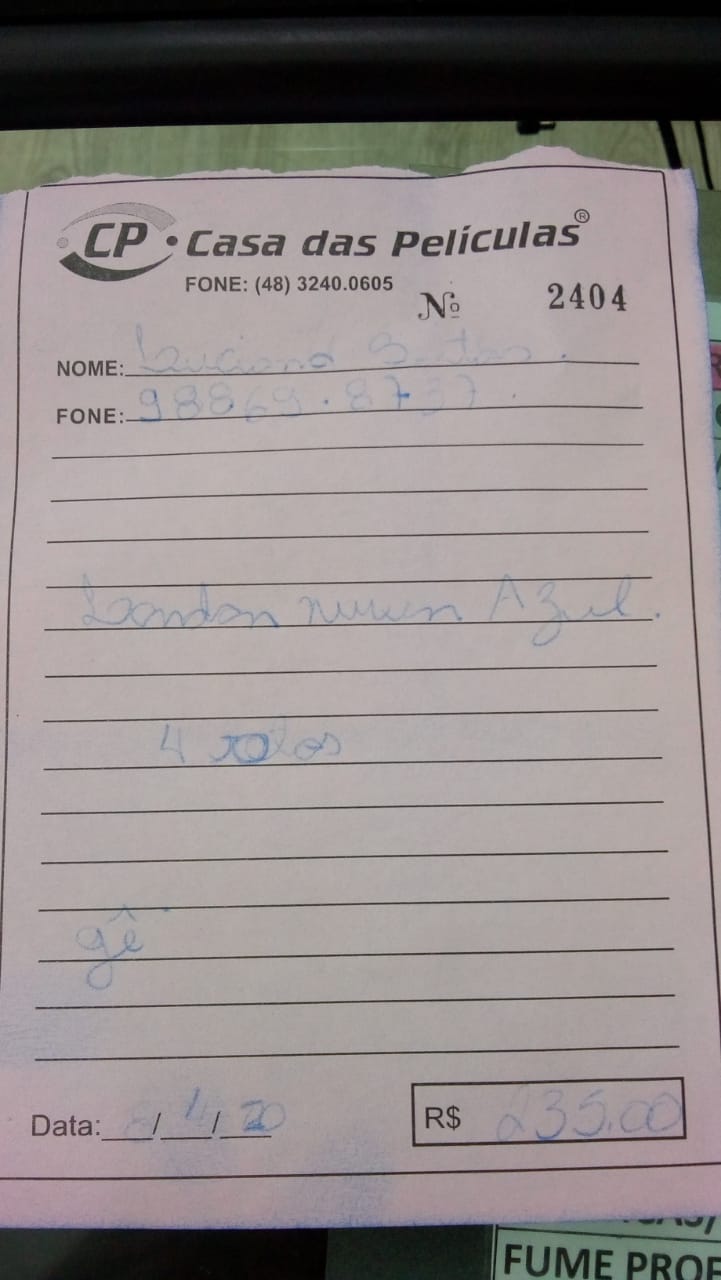 CP • Casa das Películas®
FONE: (48) 3240.0605
Nº 2404
NOME: Luciana
FONE: 98869.8737
London Azul.
4 rolos
gê
Data: 8/4/20
R$ 235,00
FUME PROF